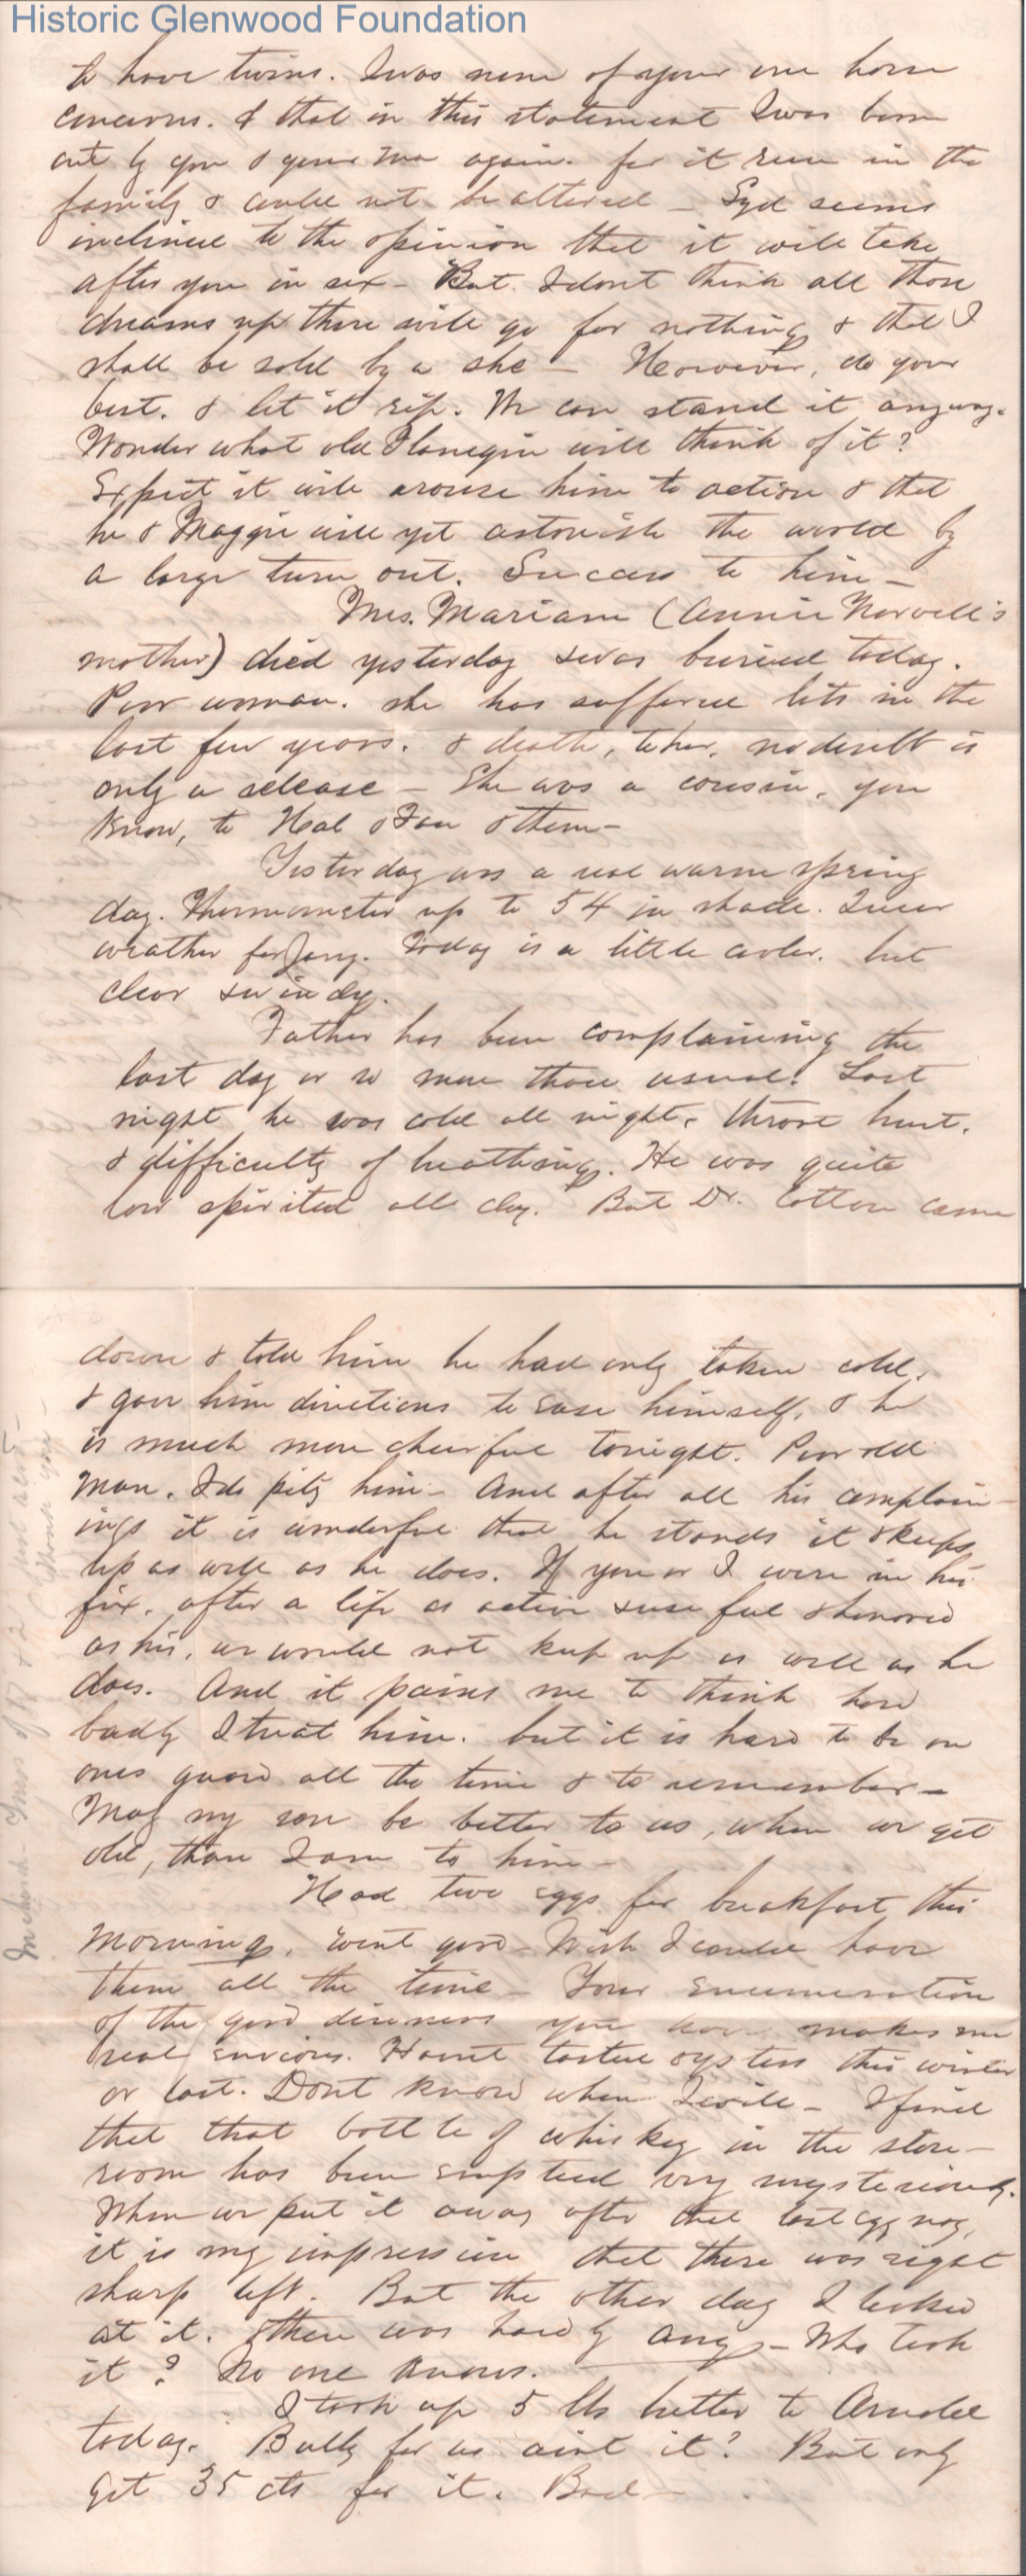 Historic Glenwood Foundation
to have twins. I was none of your one horse
concerns. & that in this statement I was born
out by you & your ma again. for it runs in the
family & could not be altered – Syd seems
inclined to the opinion that it will take
after you in sex – But I dont think all those
dreams up there will go for nothing & that I
shall be sold by a she – However, do your
best. & let it rip. We can stand it anyway.
Wonder what old Flanegin will think of it?
Expect it will arouse him to action & that
he & Maggie will yet astonish the world by
a large turn out. Success to him –
Mrs. Mariam (Annie Norvell's
mother) died yesterday & was buried today.
Poor woman. she has suffered lots in the
last few years. & death, to her, no doubt is
only a release – She was a cousin, you
know, to Hal & Fan & them –
Yesterday was a real warm spring
day. Thermometer up to 54 in shade. Queer
weather for Jany. Today is a little cooler. but
clear & windy.
Father has been complaining the
last day or so more than usual. Last
night he was cold all night, throat hurt,
& difficulty of breathing. He was quite
low spirited all day. But Dr. Cotton came
down & told him he had only taken cold,
& gave him directions to ease himself, & he
is much more cheerful tonight. Poor old
man. I do pity him – And after all his complain-
ings it is wonderful that he stands it & keeps
up as well as he does. If you or I were in his
fix, after a life as active & useful & honored
as his, we would not keep up as well as he
does. And it pains me to think how
badly I treat him. but it is hard to be on
ones guard all the time & to remember –
May my son be better to us, when we get
old, than I am to him –
Had two eggs for breakfast this
morning. Went good – Wish I could have
them all the time – Your enumeration
of the good dinners you have makes me
real envious. Havnt tasted oysters this winter
or last. Dont know when I will – I find
that that bottle of whiskey in the store-
room has been emptied very mysteriously.
When we put it away after that last egg nog,
it is my impression that there was right
sharp left. But the other day I looked
at it. & there was hardly any – Who took
it? No one knows.
I took up 5 lbs butter to Arnold
today. Bully for us aint it? But only
get 35 cts for it. Bad –